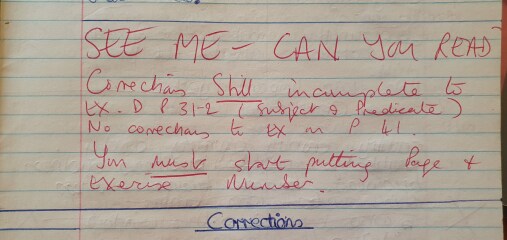 SEE ME - CAN YOU READ
Corrections Still incomplete to
EX. D P 31-2 (Subject & Predicate)
No corrections to EX on P 41.
You must start putting Page &
Exercise Number.
Corrections